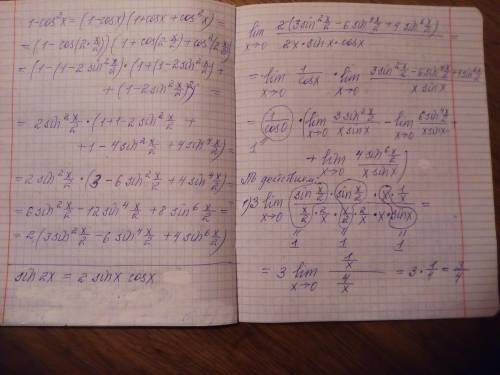 1-cos³x = (1-cosx)(1+cosx+cos²x) =
= (1-cos(2·x/2))(1+cos(2·x/2)+cos²(2·x/2)) =
= (1-(1-2sin²x/2))·(1+(1-2sin²x/2)+
+(1-2sin²x/2)²) =
= 2sin²x/2·(1+1-2sin²x/2+
+1-4sin²x/2+4sin⁴x/2) =
= 2sin²x/2·(3-6sin²x/2+4sin⁴x/2) =
= 6sin²x/2-12sin⁴x/2+8sin⁶x/2 =
= 2(3sin²x/2-6sin⁴x/2+4sin⁶x/2)
sin2x = 2sinx cosx
lim x→0 2(3sin²x/2-6sin⁴x/2+4sin⁶x/2) / 2x·sinx·cosx =
= lim x→0 1/cosx · lim x→0 3sin²x/2-6sin⁴x/2+4sin⁶x/2 / x sinx =
= 1/cos0·(lim x→0 3sin²x/2 / x sinx - lim x→0 6sin⁴x/2 / x sinx +
1 + lim x→0 4sin⁶x/2 / x sinx)
По действиям:
1) 3 lim x→0 (sin x/2)·(sin x/2)·x·1/x / x/2·2/x·x/2·2/x·x·sinx =
1 1 1
= 3 lim x→0 1/x / 4/x = 3·1/4 = 3/4